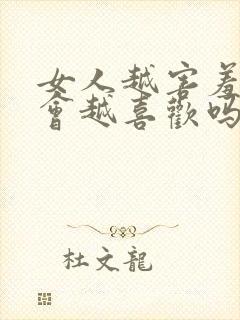 女人越害羞
會越喜歡吗
杜文龍